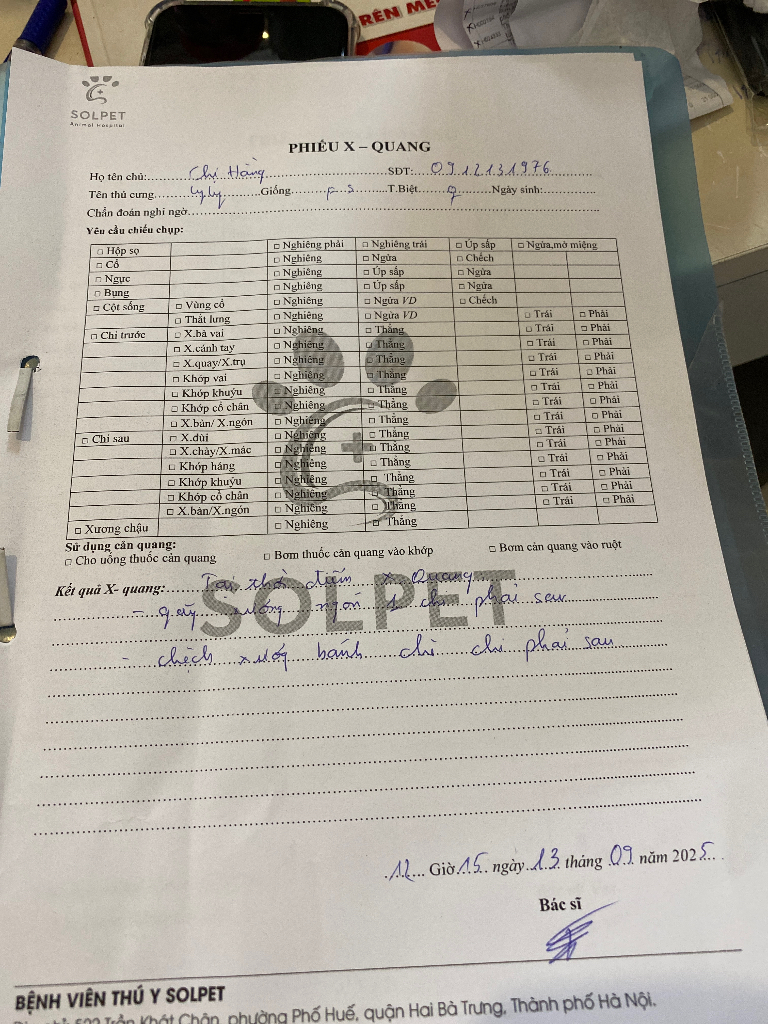 TRÊN MÊ
SOLPET
Animal Hospital
PHIẾU X – QUANG
Họ tên chủ: Chị Hằng SĐT: 0912131976
Tên thú cưng LyLy Giống P.S T.Biệt ♀ Ngày sinh:
Chẩn đoán nghi ngờ
Yêu cầu chiếu chụp:
□ Hộp sọ □ Nghiêng phải □ Nghiêng trái □ Úp sấp □ Ngửa,mở miệng
□ Cổ □ Nghiêng □ Ngửa □ Chếch
□ Ngực □ Nghiêng □ Úp sấp □ Ngửa
□ Bụng □ Nghiêng □ Úp sấp □ Ngửa
□ Cột sống □ Vùng cổ □ Nghiêng □ Ngửa VD □ Chếch
□ Thắt lưng □ Nghiêng □ Ngửa VD □ Trái □ Phải
□ Chi trước □ X.bả vai □ Nghiêng □ Thẳng □ Trái □ Phải
□ X.cánh tay □ Nghiêng □ Thẳng □ Trái □ Phải
□ X.quay/X.trụ □ Nghiêng □ Thẳng □ Trái □ Phải
□ Khớp vai □ Nghiêng □ Thẳng □ Trái □ Phải
□ Khớp khuỷu □ Nghiêng □ Thẳng □ Trái □ Phải
□ Khớp cổ chân □ Nghiêng □ Thẳng □ Trái □ Phải
□ X.bàn/ X.ngón □ Nghiêng □ Thẳng □ Trái □ Phải
□ Chi sau □ X.đùi □ Nghiêng □ Thẳng □ Trái □ Phải
□ X.chày/X.mác □ Nghiêng □ Thẳng □ Trái □ Phải
□ Khớp háng □ Nghiêng □ Thẳng □ Trái □ Phải
□ Khớp khuỷu □ Nghiêng □ Thẳng □ Trái □ Phải
□ Khớp cổ chân □ Nghiêng □ Thẳng □ Trái □ Phải
□ X.bàn/X.ngón □ Nghiêng □ Thẳng
□ Xương chậu □ Nghiêng □ Thẳng
Sử dụng cản quang:
□ Cho uống thuốc cản quang □ Bơm thuốc cản quang vào khớp □ Bơm cản quang vào ruột
Kết quả X- quang: Tại thời điểm x Quang
- gãy xương ngón 1 chi phải sau
SOLPET
- chệch xương bánh chè chi phải sau
12 Giờ 15 ngày 13 tháng 09 năm 2025
Bác sĩ
BỆNH VIỆN THÚ Y SOLPET
Trần Khát Chân, phường Phố Huế, quận Hai Bà Trưng, Thành phố Hà Nội.